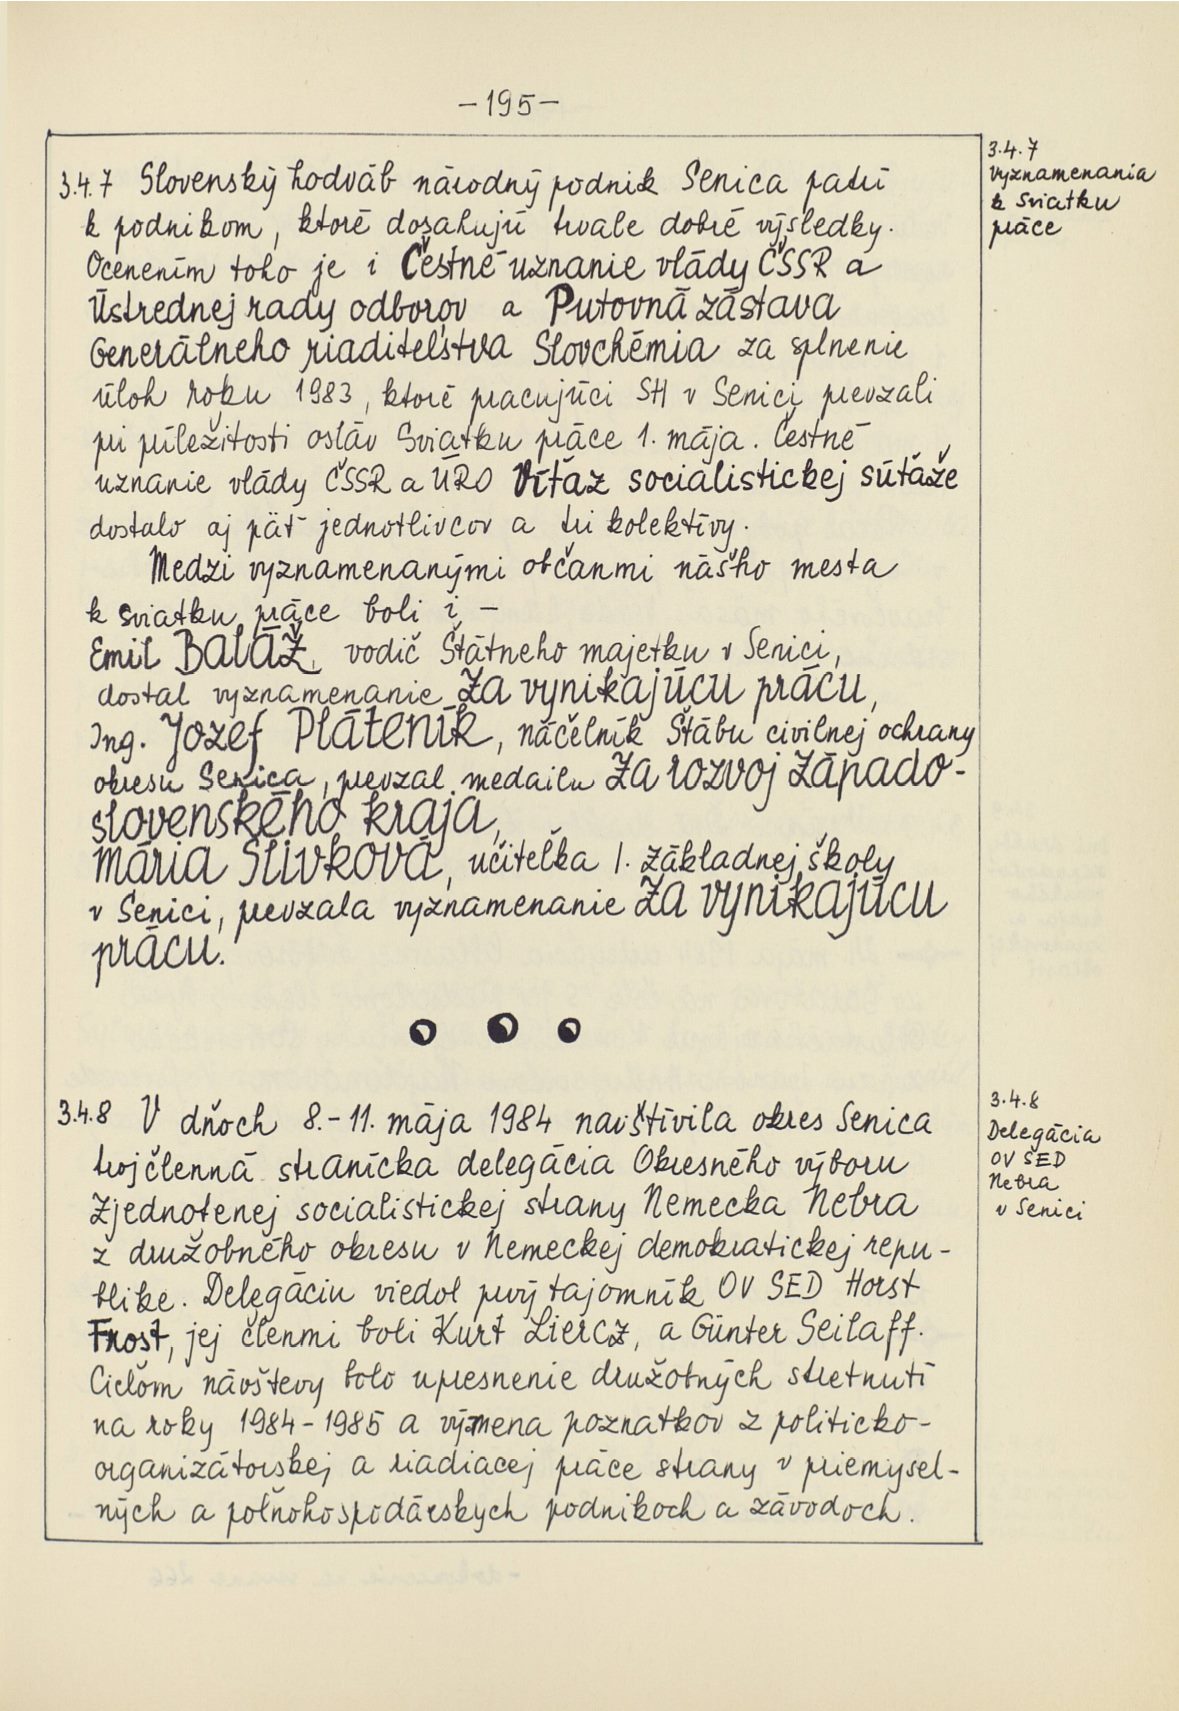 -195-
3.4.7 Slovenský hodváb národný podnik Senica patrí
k podnikom, ktoré dosahujú trvale dobré výsledky.
Ocenením toho je i Čestné uznanie vlády ČSSR a
Ústrednej rady odborov a Putovná zástava
Generálneho riaditeľstva Slovchémia za splnenie
úloh roku 1983, ktoré pracujúci SH v Senici prevzali
pri príležitosti osláv Sviatku práce 1. mája. Čestné
uznanie vlády ČSSR a ÚRO Víťaz socialistickej súťaže
dostalo aj päť jednotlivcov a tri kolektívy.
Medzi vyznamenanými občanmi nášho mesta
k sviatku práce boli i -
Emil Baláž, vodič Štátneho majetku v Senici,
dostal vyznamenanie Za vynikajúcu prácu,
Ing. Jozef Pláteník, náčelník Štábu civilnej ochrany
okresu Senica, prevzal medailu Za rozvoj Západo-
slovenského kraja,
Mária Slivková, učiteľka 1. základnej školy
v Senici, prevzala vyznamenanie Za vynikajúcu
prácu.
3.4.7
Vyznamenania
k sviatku
práce
3.4.8 V dňoch 8.-11. mája 1984 navštívila okres Senica
trojčlenná stranícka delegácia Okresného výboru
Zjednotenej socialistickej strany Nemecka Nebra
z družobného okresu v Nemeckej demokratickej repu-
blike. Delegáciu viedol prvý tajomník OV SED Horst
Frost, jej členmi boli Kurt Liercz, a Günter Seilaff.
Cieľom návštevy bolo upresnenie družobných stretnutí
na roky 1984-1985 a výmena poznatkov z politicko-
organizátorskej a riadiacej práce strany v priemysel-
ných a poľnohospodárskych podnikoch a závodoch.
3.4.8
Delegácia
OV SED
Nebra
v Senici